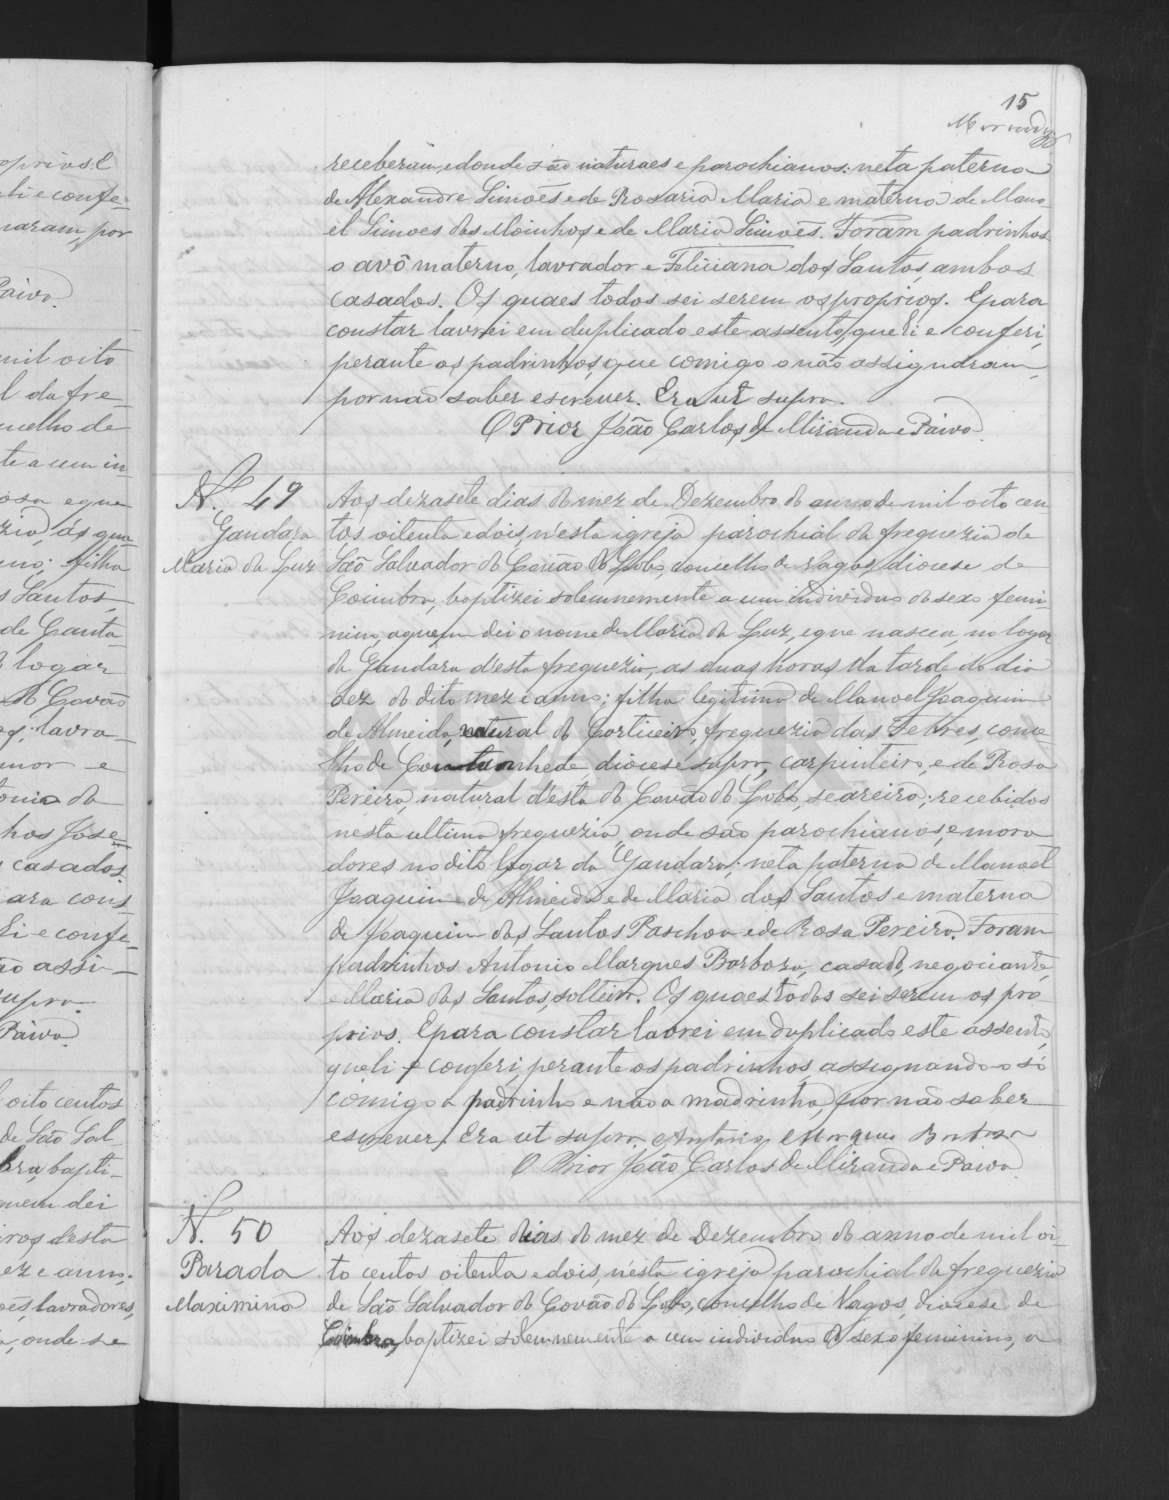 15
Miranda
receberam, e donde são naturaes e parochianos: neta paterna
de Alexandre Simoẽs e de Rosaria Maria e materna de Mano-
el Simoes dos Moinhos e de Maria Simoẽs. Foram padrinhos
o avô materno, lavrador e Feliciana dos Santos, ambos
casados. Os quaes todos sei serem os proprios. E para
constar lavrei em duplicado este assento, que li e conferi,
perante os padrinhos, que comigo o não assignaram,
por não saber escrever. Era ut supra.
O Prior João Carlos de Miranda e Paiva.
N. 49
Gandara
Maria da Luz
Aos dezasete dias do mez de Dezembro do anno de mil oito cen-
tos oitenta e dois, n'esta igreja parochial da freguezia de
São Salvador do Covão do Lobo, concelho de Vagos, diocese de
Coimbra, baptizei solemnemente a um individuo do sexo femi-
nino, a quem dei o nome de Maria da Luz, e que nasceu, no logar
da Gandara d'esta freguezia, as duas horas da tarde do dia
dez do dito mez e anno; filha legitima de Manoel Joaquim
de Almeida, natural do Corticeiro, freguezia das Febres, conce
lho de Cantanhede, diocese supra, carpinteiro, e de Rosa
Pereira, natural d'esta do Covão do Lobo, seareira; recebidos
nesta ultima freguezia, onde são parochianos, e mora
dores no dito logar da Gandara; neta paterna de Manoel
Joaquim de Almeida e de Maria dos Santos e materna
de Joaquim dos Santos Paschoa e de Rosa Pereira. Foram
padrinhos Antonio Marques Barbosa, casado, negociante,
e Maria dos Santos, solteira. Os quaes todos sei serem os pro
prios. E para constar lavrei em duplicado este assento,
que li e conferi, perante os padrinhos, assignando-o só
comigo o padrinho e não a madrinha, por não saber
escrever. Era ut supra. Antonio Marques Barbosa
O Prior João Carlos de Miranda e Paiva.
N. 50
Parada
Maximina
Aos dezasete dias do mez de Dezembro do anno de mil oi-
to centos oitenta e dois, n'esta igreja parochial da freguezia
de São Salvador do Covão do Lobo, concelho de Vagos, diocese de
Coimbra, baptizei solemnemente a um individuo do sexo feminino, a